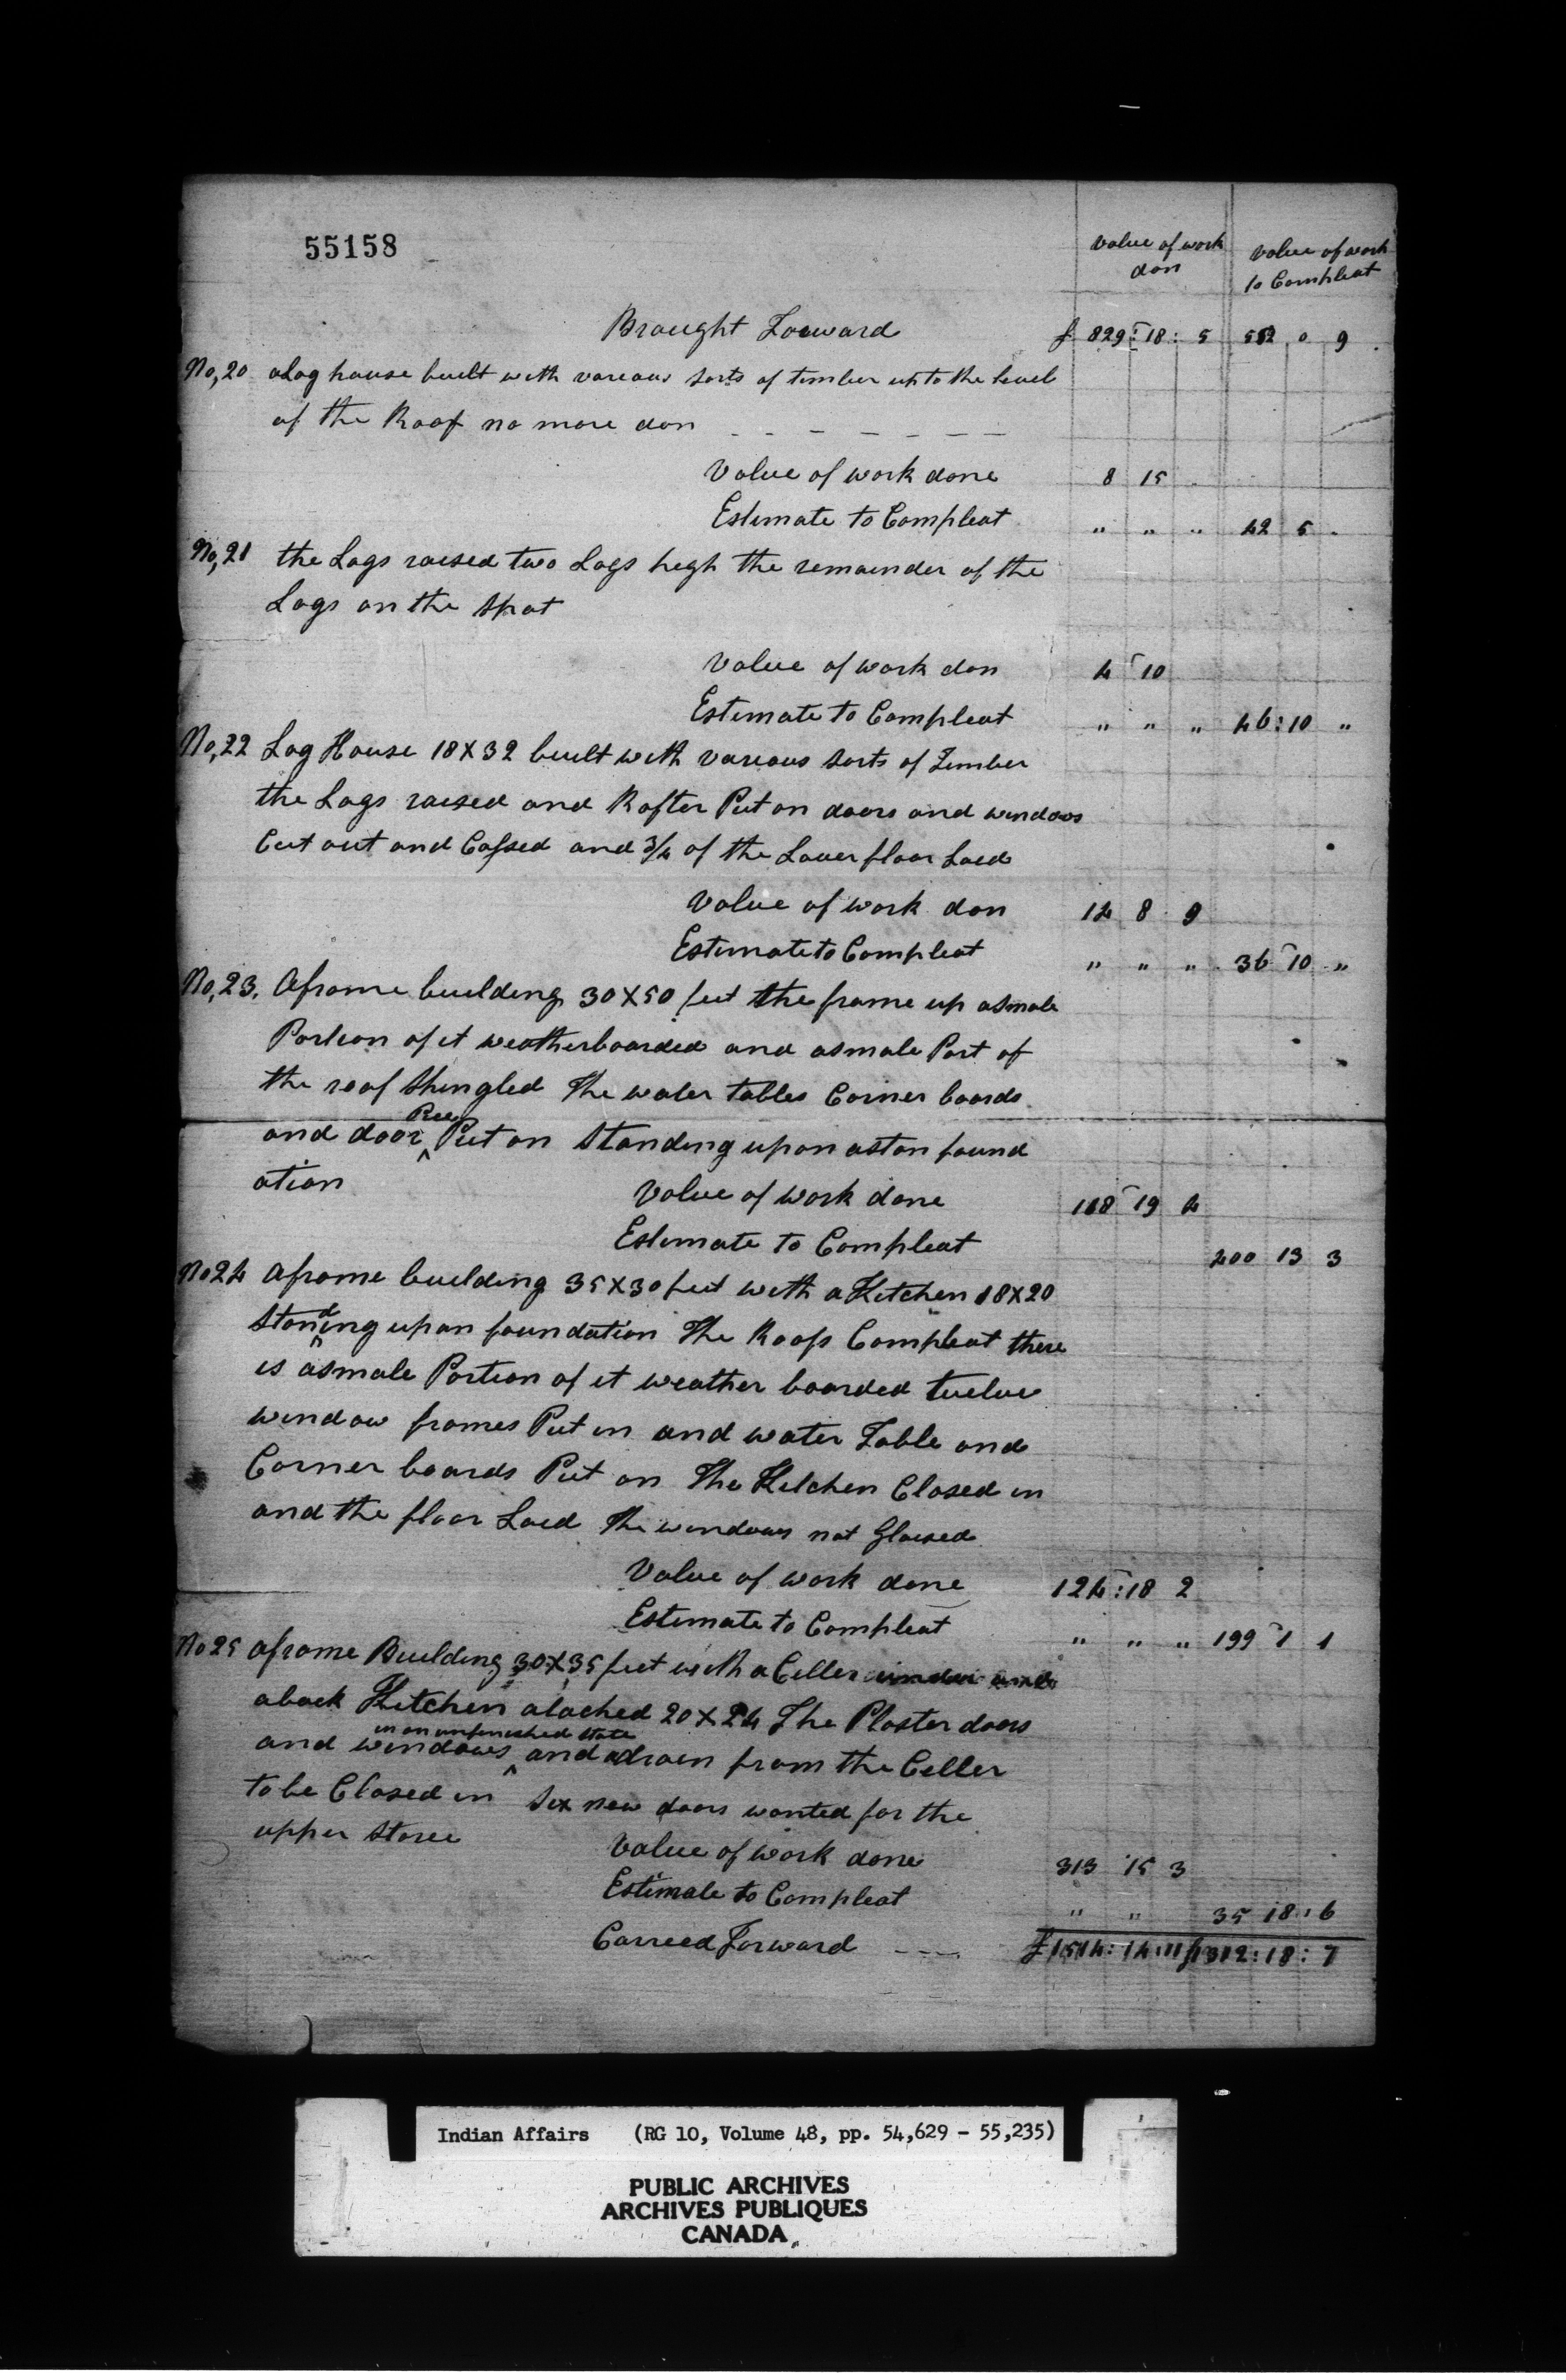 55158
Value of work don
Value of work to Compleat
Braught Forward £ 829 : 18 : 5 552 0 9
No, 20 alog house built with vareaus sorts of timber up to the level
of the Roof no more don
Value of work done 8 15
Estimate to Compleat " " " 42 5 "
No, 21 the Logs raised two Logs high the remainder of the
Logs on the Spot
Value of work don 4 10
Estimate to Compleat " " " 46 : 10 "
No, 22 Log House 18 X 32 built with vareous sorts of Timber
the Logs raised and Rafter Put on doors and windows
Cut out and Cassed and 3/4 of the Lower floor Laid
Value of work don 14 8 9
Estimate to Compleat " " " 36 10 "
No, 23. Aframe building 30 X 50 feet the frame up asmale
Portion of it weatherboarded and asmale Part of
the roof Shingled The water tables Corner boards
and door Put on Standing upon aston found
ation
Value of work done 118 19 4
Estimate to Compleat 400 13 3
No 24 Aframe building 35 X 30 feet with a Kitchen 18 X 20
Standing upon foundation The Roofs Compleat there
is asmale Portion of it weather boarded twelve
window frames Put in and water Table and
Corner boards Put on The Kitchen Closed in
and the floor Laid The windows not Glaised
Value of work done 124 : 18 2
Estimate to Compleat " " " 199 1 1
No 25 aframe Building 30 X 35 feet with a Celler
aback Kitchen atached 20 X 24 The Plaster doors
and windows in an unfinished state and adrain from the Celler
to be Closed in Six new doors wanted for the
upper Storee
Value of work done 313 15 3
Estimate to Compleat " " 35 18 : 6
Carreed Forward £1514 : 14 : 11 £1312 : 18 : 7
Indian Affairs (RG 10, Volume 48, pp. 54,629 - 55,235)
PUBLIC ARCHIVES
ARCHIVES PUBLIQUES
CANADA